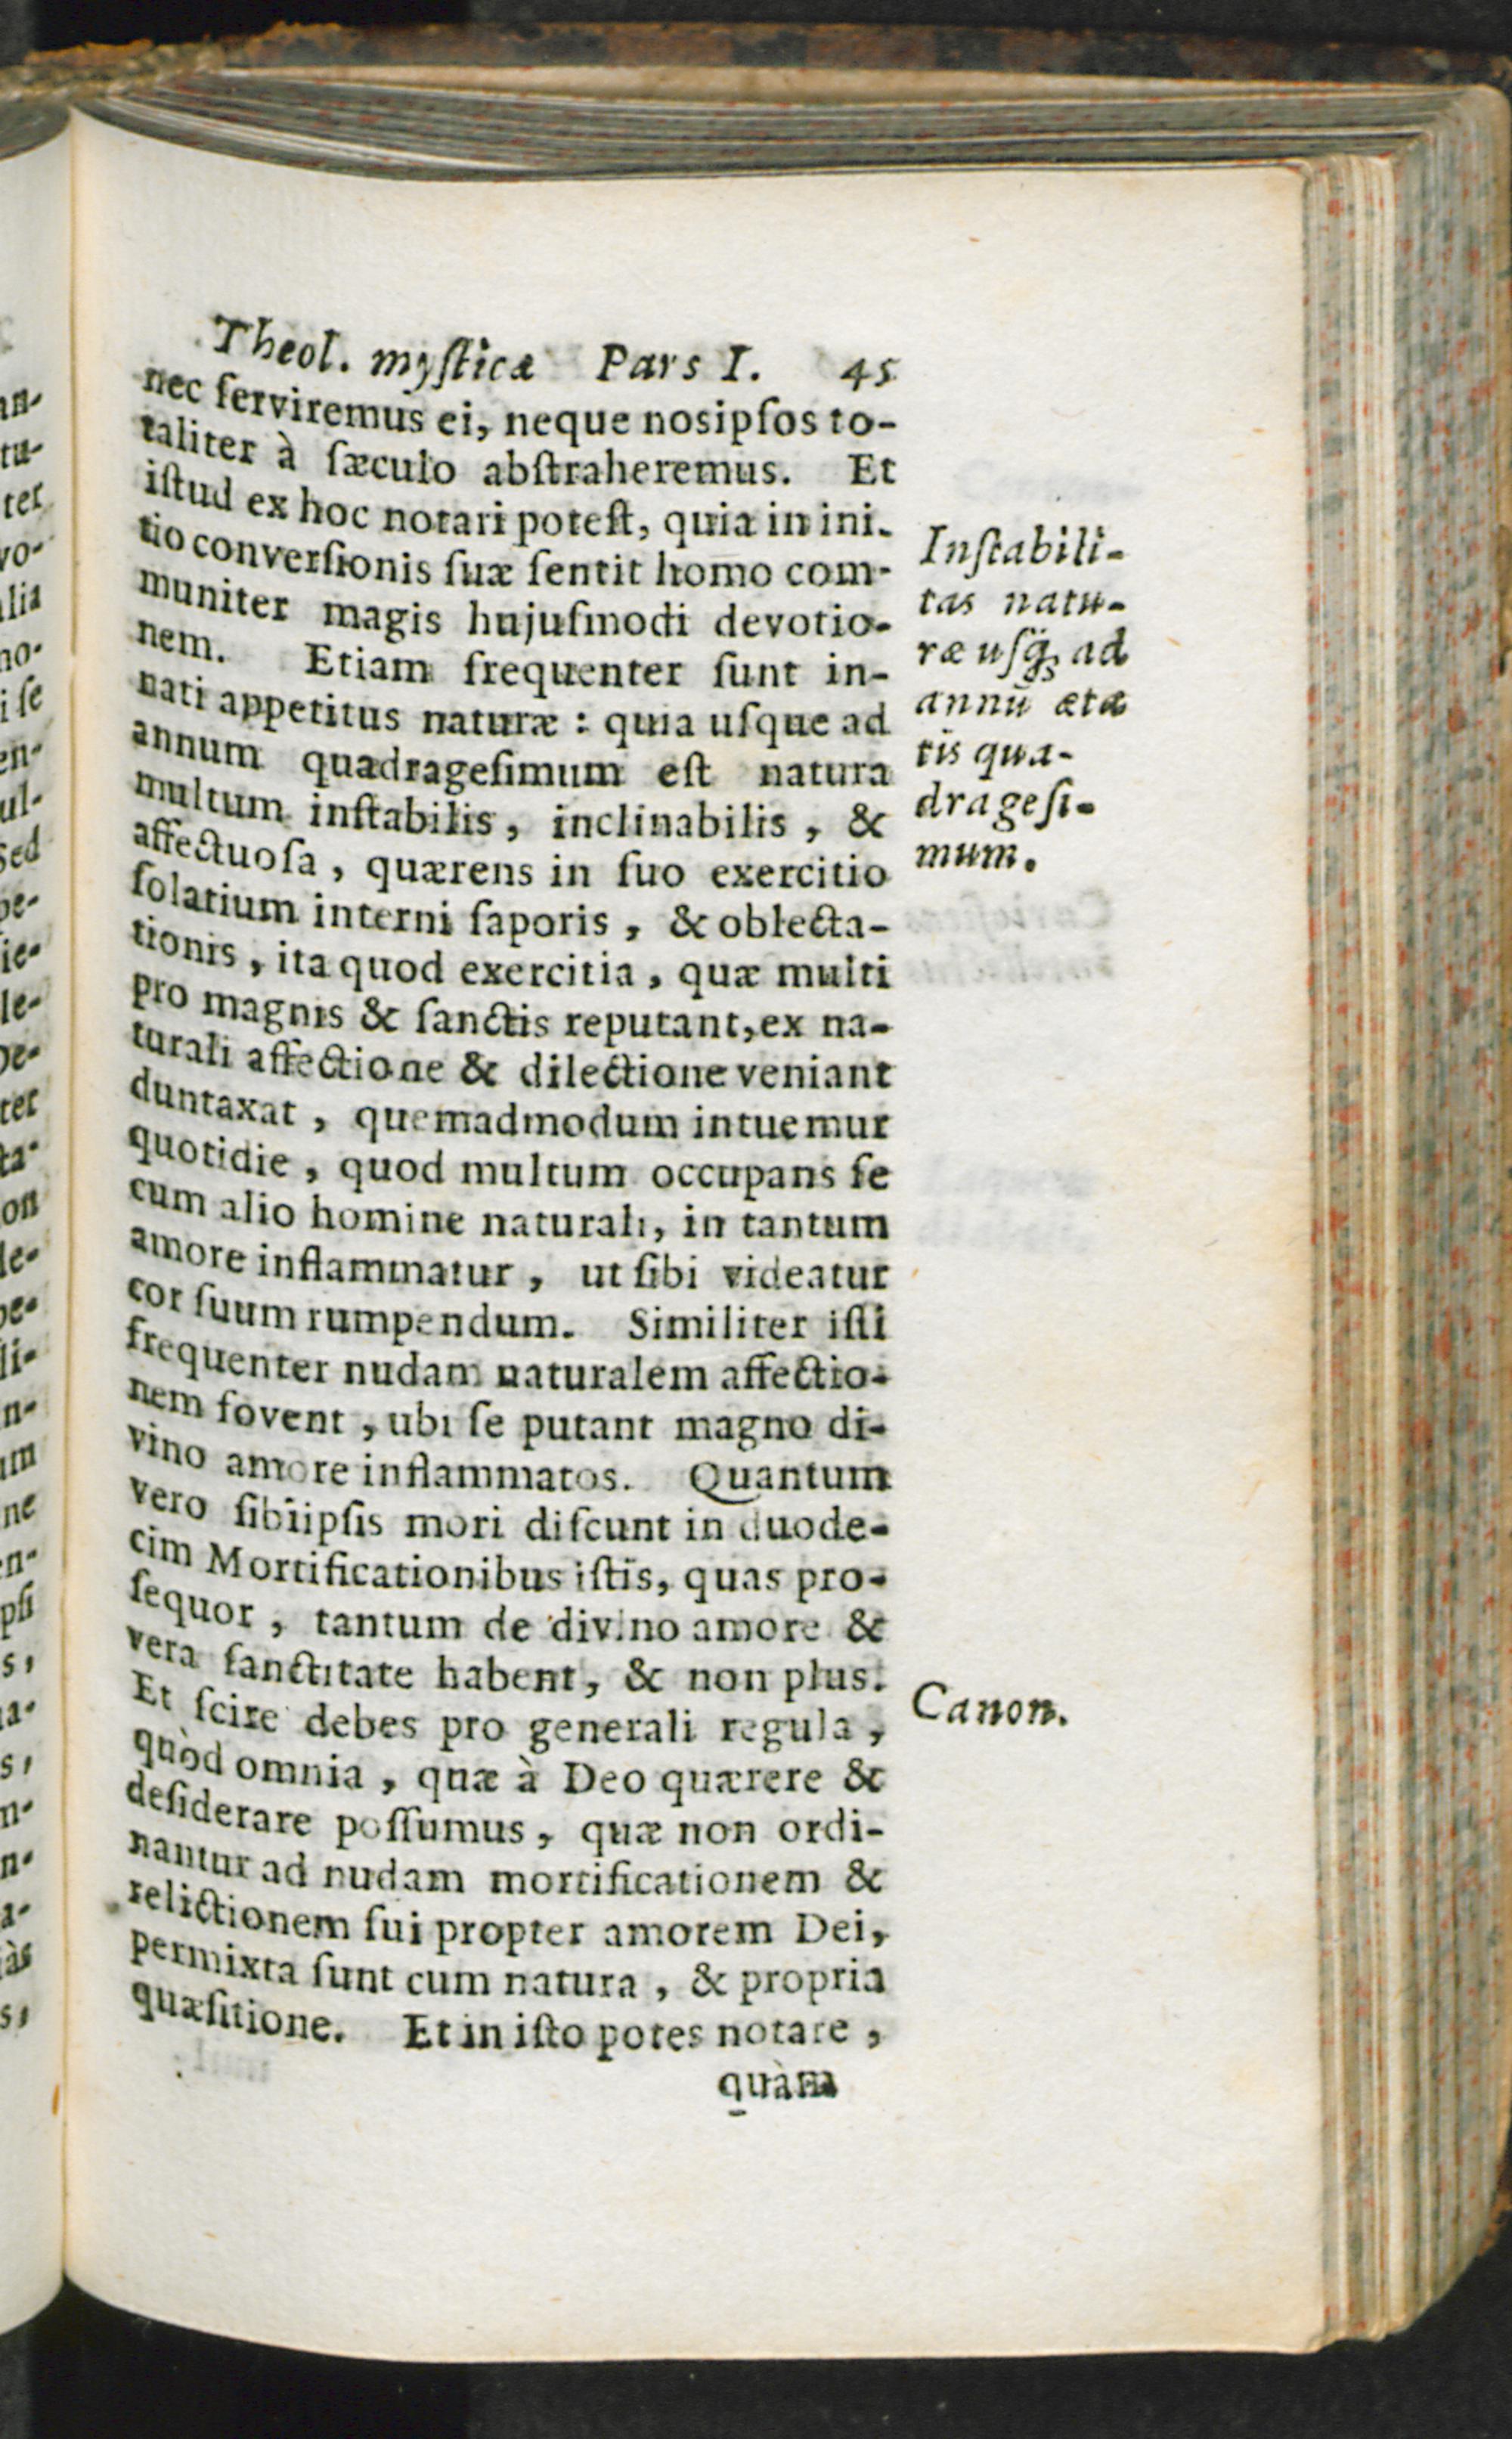 Theol. mysticæ Pars I. 45
nec ſerviremus ei, neque nosipſos to-
taliter à ſæculo abſtraheremus. Et
iſtud ex hoc notari poteſt, quia in ini-
tio converſionis ſuæ ſentit homo com-
muniter magis hujuſmodi devotio-
nem. Etiam frequenter ſunt in-
nati appetitus naturæ : quia uſque ad
annum quadrageſimum eſt natura
multum inſtabilis, inclinabilis, &
affectuoſa, quærens in ſuo exercitio
ſolatium interni ſaporis, & oblecta-
tionis, ita quod exercitia, quæ multi
pro magnis & ſanctis reputant, ex na-
turali affectione & dilectione veniant
duntaxat, quemadmodum intuemur
quotidie, quod multum occupans ſe
cum alio homine naturali, in tantum
amore inflammatur, ut ſibi videatur
cor ſuum rumpendum. Similiter iſti
frequenter nudam naturalem affectio-
nem fovent, ubi ſe putant magno di-
vino amore inflammatos. Quantum
vero ſibiipſis mori diſcunt in duode-
cim Mortificationibus iſtis, quas pro-
ſequor, tantum de divino amore &
vera ſanctitate habent, & non plus.
Et ſcire debes pro generali regula,
quòd omnia, quæ à Deo quærere &
deſiderare poſſumus, quæ non ordi-
nantur ad nudam mortificationem &
relictionem ſui propter amorem Dei,
permixta ſunt cum natura, & propria
quæſitione. Et in iſto potes notare,
quàm
Inſtabili-
tas natu-
ræ uſq; ad
annū æta
tis qua-
drageſi-
mum.
Canon.
an-
tu-
ter
vo-
lia
no-
i ſe
en-
ul-
Sed
pe-
ie-
le-
pe-
ter
ta-
on
le-
pe-
li-
n-
um
ne
en-
pſi
s,
a-
s,
n-
n-
a-
às
s,